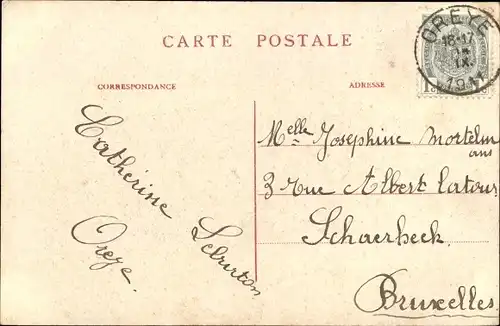 CARTE POSTALE
CORRESPONDANCE
ADRESSE
OREYE
18-17
IX
1911
Catherine
Oreye.
Melle Josephine Mortelm
ans
3 rue Albert Latour
Schaerbeek
Bruxelles